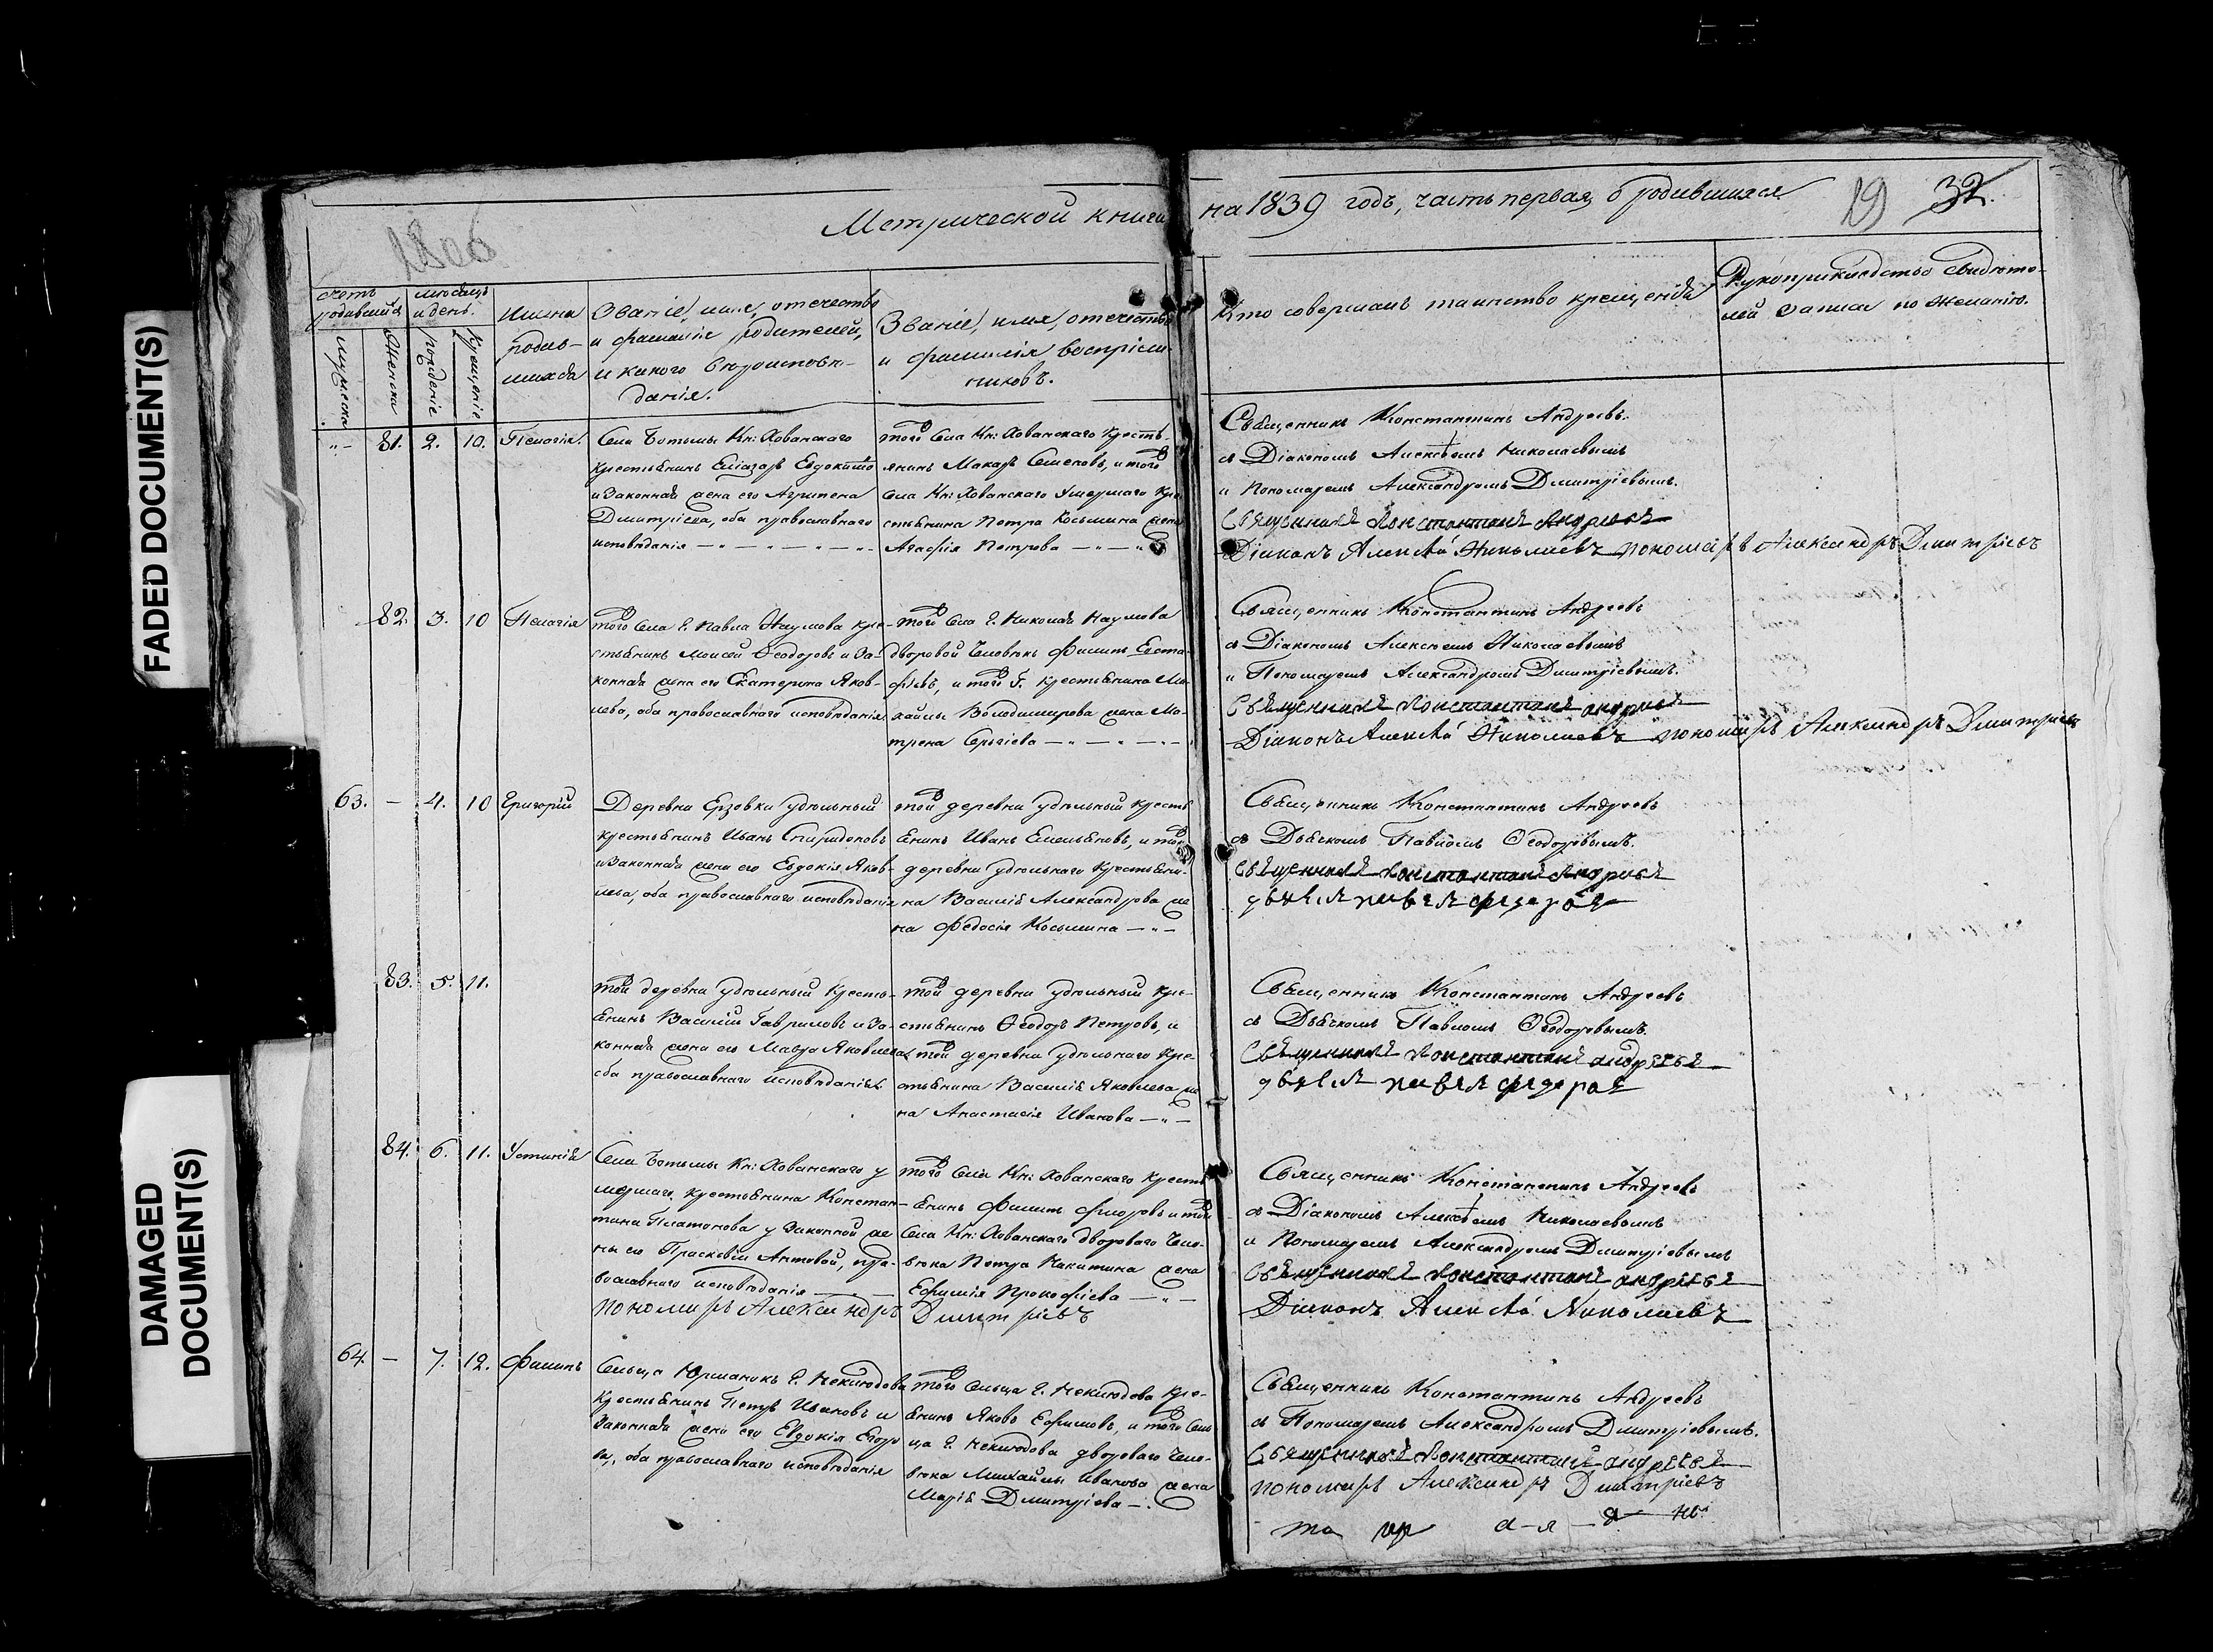 FADED DOCUMENT(S)
DAMAGED DOCUMENT(S)
Метрической книги на 1839 годъ, часть первая, о родившихся
19 32.
1806
счетъ родившихся
мѣсяцъ и день.
мужеска
женска
рожденіе
крещеніе
имена
родив-
шихся
Званіе, имя, отечество
и фамилія родителей,
и какого вѣроисповѣ-
данія.
Званіе, имя, отечество
и фамилія воспріем-
никовъ.
Кто совершалъ таинство крещенія
Рукоприкладство свидѣте-
лей записи по желанію.
"- 81. 2. 10. Пелагія.
Села Ботьмы Кн: Хованскаго
крестьянинъ Еліазаръ Евдокимо
и законная жена его Агрипена
Дмитріева, оба православнаго
исповѣданія
того Села Кн: Хованскаго кресть-
янинъ Макаръ Семеновъ, и того
Села Кн: Хованскаго умершаго кре
стьянина Петра Косьмина жена
Агафія Петрова
Священникъ Константинъ Андреевъ.
съ Діакономъ Алексѣемъ Николаевымъ
и Пономаремъ Александромъ Дмитріевымъ.
Священникъ Константинъ Андреевъ
Діаконъ Алексѣй Николаевъ пономарь Александръ Дмитріевъ
82. 3. 10 Пелагія
того Села Г. Павла Наумова кре-
стьянинъ Моисей Ѳеодоровъ и за-
конная жена его Екатерина Яков-
лева, оба православнаго исповѣданія
того Села Г. Николая Наумова
дворовой человѣкъ Филипъ Евста-
фіевъ, и того Г. крестьянина Ми-
хайлы Володимирова жена Ма-
трена Сергіева
Священникъ Константинъ Андреевъ
съ Діакономъ Алексѣемъ Николаевымъ
и Пономаремъ Александромъ Дмитріевымъ.
Священникъ Константинъ Андреевъ
Діаконъ Алексѣй Николаевъ пономарь Александръ Дмитріевъ
63. - 4. 10 Григорій
Деревни Ерзовки удѣльный
крестьянинъ Иванъ Спиридоновъ
и законная жена его Евдокія Яков-
лева, оба православнаго исповѣданія
той деревни удѣльный кресть
янинъ Иванъ Емельяновъ, и той
деревни удѣльнаго крестьяни-
на Василія Александрова же
на Федосія Косьмина
Священникъ Константинъ Андреевъ
съ Дьячкомъ Павломъ Ѳеодоровымъ.
Священникъ Константинъ Андреевъ
83. 5. 11.
той деревни удѣльный кресть-
янинъ Василій Гавриловъ и за-
конная жена его Мавра Яковлева
оба православнаго исповѣданія
той деревни удѣльный кре-
стьянинъ Ѳеодоръ Петровъ, и
той деревни удѣльнаго кре-
стьянина Василія Яковлева же
на Анастасія Иванова
Священникъ Константинъ Андреевъ
съ Дьячкомъ Павломъ Ѳеодоровымъ.
Священникъ Константинъ Андреевъ
84. 6. 11. Устинія
Села Ботьмы Кн: Хованскаго у
мершаго крестьянина Констан-
тина Платонова у законной же
ны его Прасковьи Антовой, пра-
вославнаго исповѣданія
пономарь Александръ Дмитріевъ
того Села Кн: Хованскаго кресть
янинъ Филипъ Федоровъ и той
Села Кн: Хованскаго двороваго чело-
вѣка Петра Никитина жена
Ефимія Прокофіева
Священникъ Константинъ Андреевъ
съ Діакономъ Алексѣемъ Николаевымъ
и Пономаремъ Александромъ Дмитріевымъ
Священникъ Константинъ Андреевъ
Діаконъ Алексѣй Николаевъ
64. - 7. 12. Филипъ
Сельца Юрманокъ Г. Неклюдова
крестьянинъ Петръ Ивановъ и
законная жена его Евдокія Егоро
ва, оба православнаго исповѣданія
того Сельца Г. Неклюдова кре-
янинъ Яковъ Ефимовъ, и того Сель
ца Г. Неклюдова двороваго чело-
вѣка Михайлы Иванова жена
Марія Дмитріева
Священникъ Константинъ Андреевъ
съ Пономаремъ Александромъ Дмитріевымъ.
Священникъ Константинъ Андреевъ
пономарь Александръ Дмитріевъ